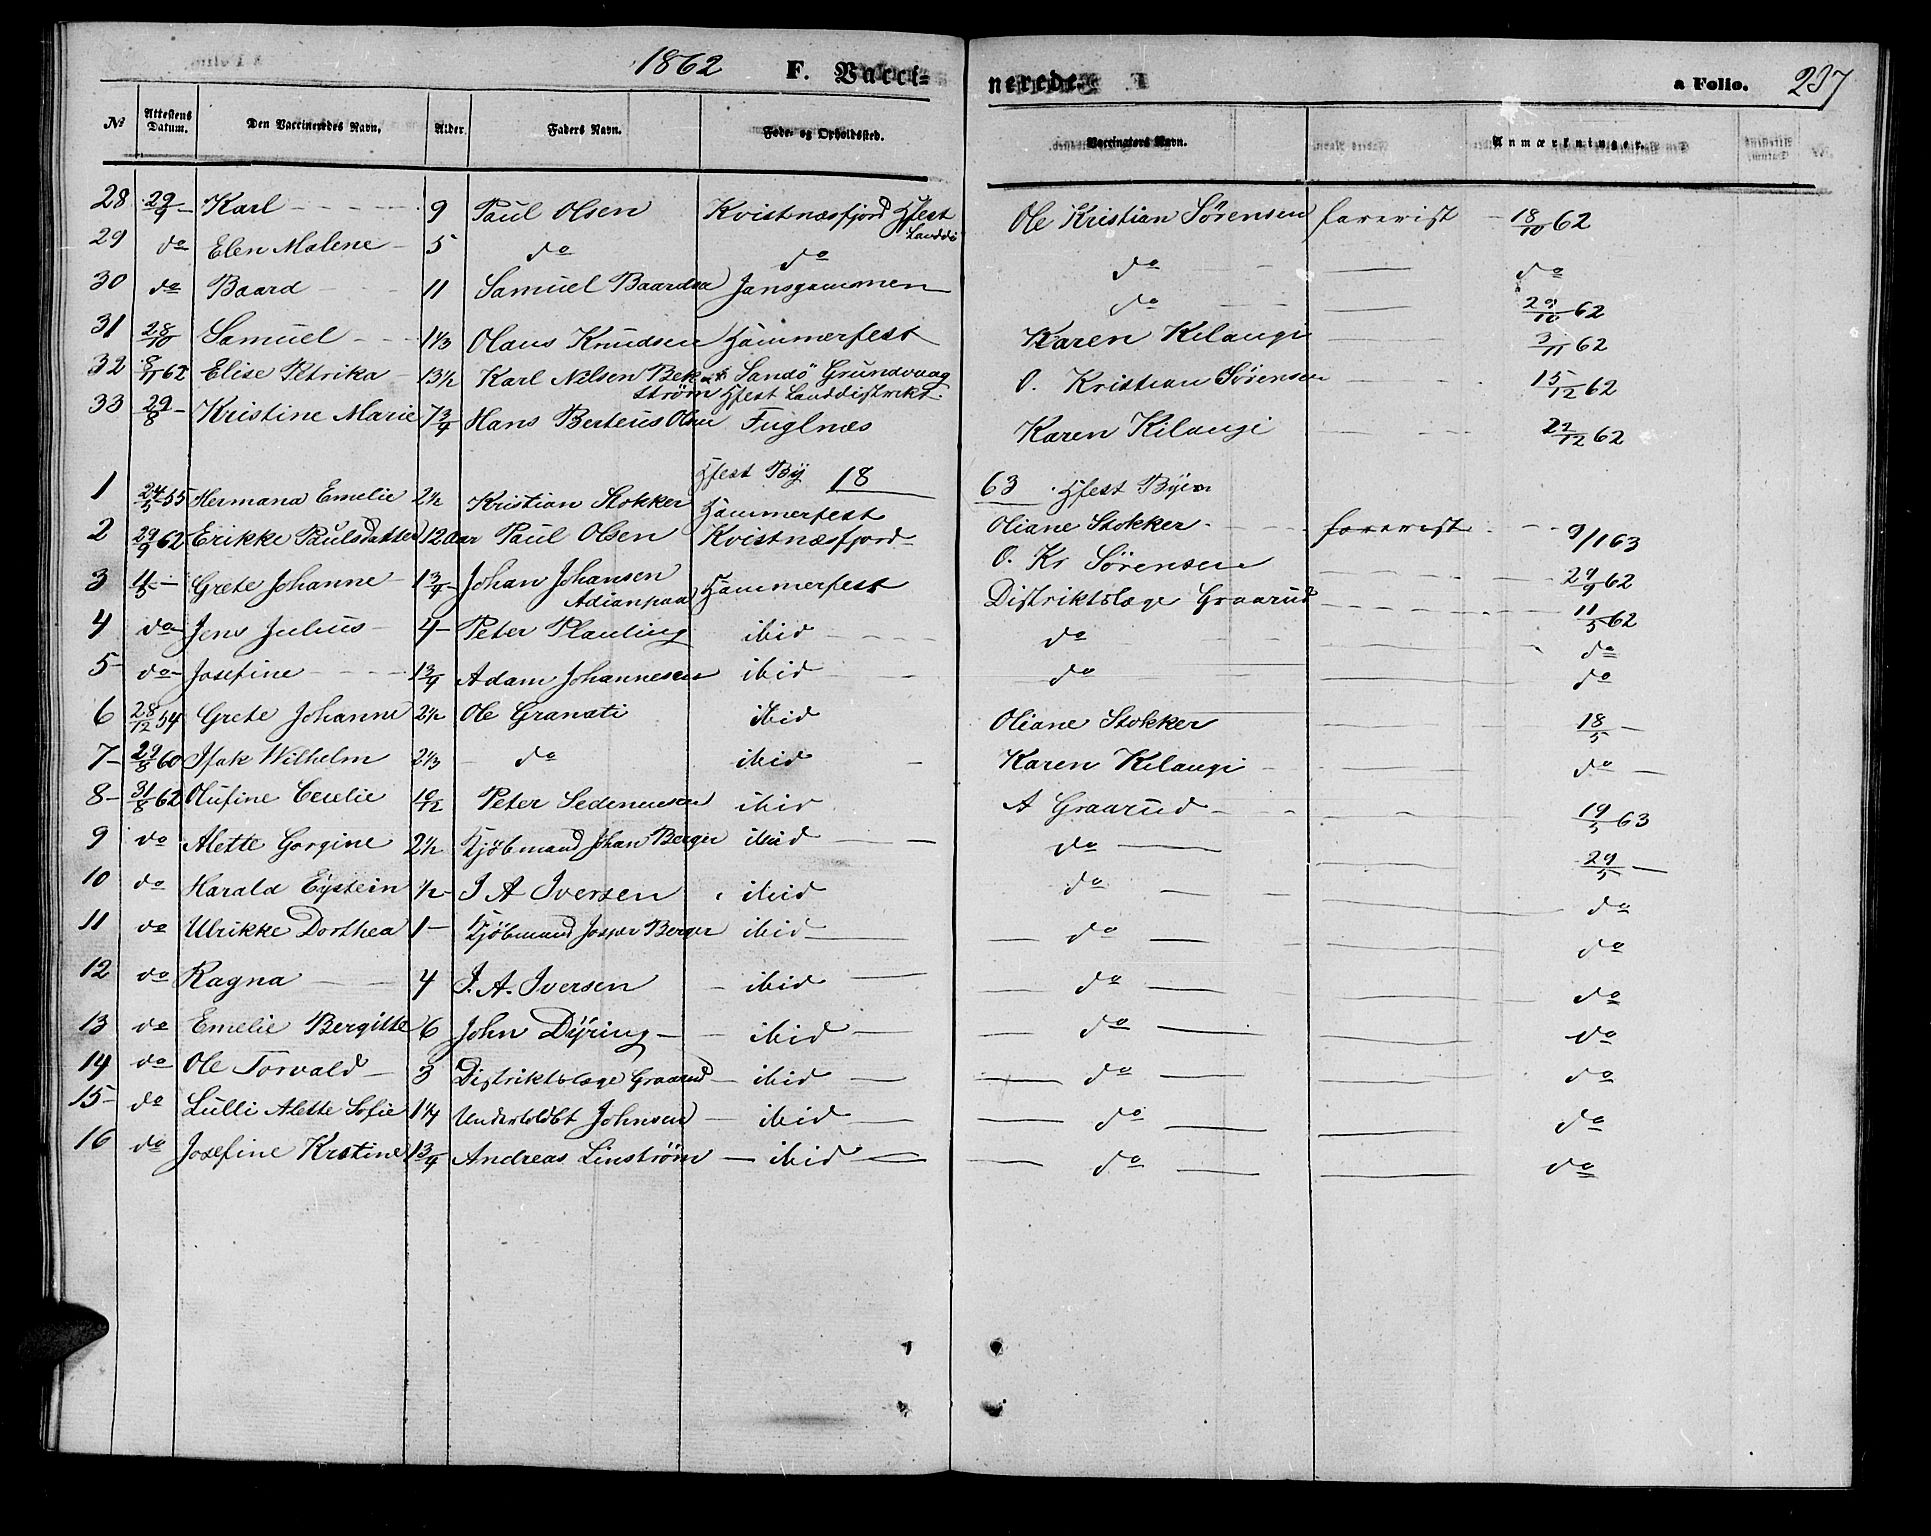 1862 F. Vacci- nerede. a Folio. 237
No Attestens Datum. Den Vaccineredes Navn. Alder. Faders Navn. Føde- og Opholdssted. Vaccinators Navn. Anmærkninger.
28 29/9 - Karl - 9 Paul Olsen Kvistnæsfjord Hfest Landd: Ole Kristian Sørensen forevist - 18/10 62
29 do Elen Malene - 5 do do do do
30 do Baard 11 Samuel Baardsen Jansgammen do 29/10 62
31 28/10 Samuel 1 1/3 Olaus Knudsen Hammerfest Karen Kilaugi 3/11 62
32 8/11 62 Elise Petrika 13 1/2 Karl Nilsen Bek- Sandö Grundvaag O. Kristian Sörensen 15/12 62
strøm Hfest Landdistrikt.
33 29/8 - Kristine Marie 7 3/4 Hans Berteus Olsen Fuglnæs Karen Kilaugi 22/12 62
Hfest By 18 63 Hfest Byen
1 24/5 55 Hermana Emelie 2 1/2 Kristian Stokker Hammerfest Oliane Stokker forevist 9/1 63
2 29/9 62 Erikke Paulsdatter 12 aar Paul Olsen Kvistnæsfjord O. Kr Sörensen 29/9 62
3 11/5 - Grete Johanne - 1 3/4 - Johan Johansen Hammerfest Distriktslæge Graarud 11/5 62
Adianpaa
4 do - Jens Julius - 4 - Peter Plauting ibid do do
5 - do - Josefine 1 3/4 Adam Johannesen ibid do do
6 28/12 54 Grete Johanne 2 1/2 Ole Granati ibid Oliane Stokker 18/5 -
7 - 29/8 60 Isak Wilhelm 2 1/3 do ibid Karen Kilaugi - do -
8 - 31/8 62 Olufine Cecelie 10/12 Peter Sedeniusen ibid A Graarud 19/5 63
9 do Alette Gorgine 2 1/2 Kjöbmand Johan Berger ibid do 29/5 -
10 do Harald Eystein 1/2 - I A Iversen ibid do do
11 do Ulrikke Dorthea 1 - Kjöbmand Jesper Berger ibid do do
12 do Ragna 4 I. A. Iversen ibid do do
13 do Emelie Bergitte 6 John Dyring - ibid do do
14 do Ole Torvald - 3 Distriktslæge Graarud - ibid do do
15 - do Lulli Alette Sofie 1 1/4 Undertoldbt Johnsen - ibid do do
16 do Josefine Krstine 1 3/4 Andreas Linström - ibid do do